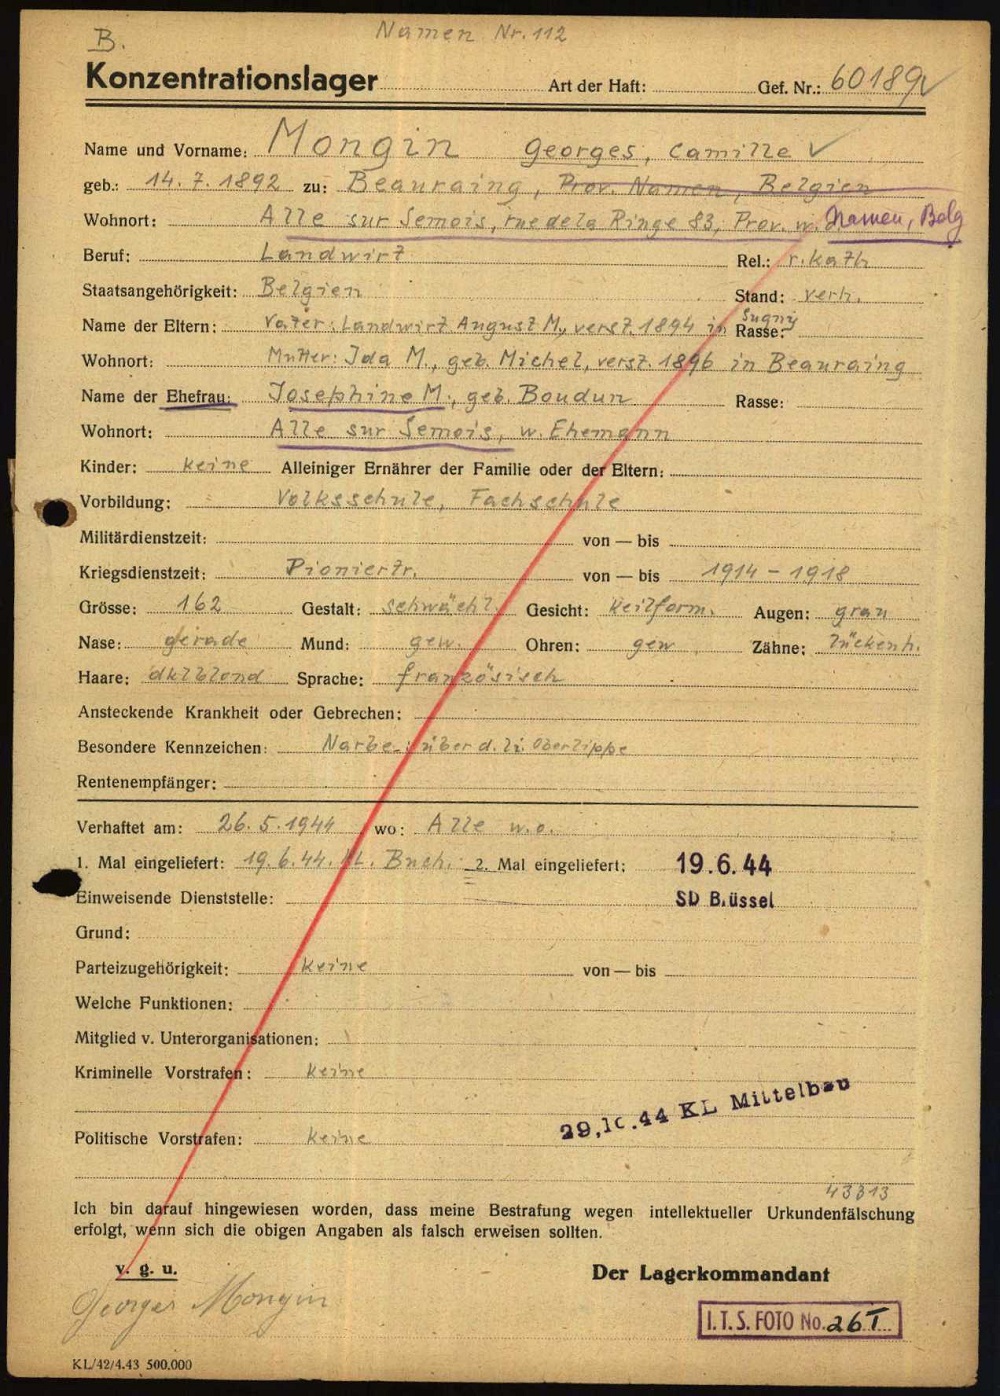 B. Namen Nr. 112
Konzentrationslager Art der Haft: Gef. Nr.: 60189
Name und Vorname: Mongin Georges, Camille
geb.: 14.7.1892 zu: Beauraing, Prov. Namen, Belgien
Wohnort: Alle sur Semois, rue de la Ringe 83, Prov. w. Namen, Belg
Beruf: Landwirt Rel.: r.kath
Staatsangehörigkeit: Belgien Stand: verh.
Name der Eltern: Vater: Landwirt August M., verst. 1894 in Sugny Rasse:
Wohnort: Mutter: Ida M., geb. Michel, verst. 1896 in Beauraing
Name der Ehefrau: Josephine M., geb. Boudun Rasse:
Wohnort: Alle sur Semois, w. Ehemann
Kinder: keine Alleiniger Ernährer der Familie oder der Eltern:
Vorbildung: Volksschule, Fachschule
Militärdienstzeit: von — bis
Kriegsdienstzeit: Pioniertr. von — bis 1914 - 1918
Grösse: 162 Gestalt: schwächl. Gesicht: keilform. Augen: grau
Nase: gerade Mund: gew. Ohren: gew Zähne: lückenh.
Haare: dklblond Sprache: französisch
Ansteckende Krankheit oder Gebrechen:
Besondere Kennzeichen: Narbe: über d. li. Oberlippe
Rentenempfänger:
Verhaftet am: 26.5.1944 wo: Alle w.o.
1. Mal eingeliefert: 19.6.44. KL. Buch. 2. Mal eingeliefert: 19.6.44
Einweisende Dienststelle: SD Brüssel
Grund:
Parteizugehörigkeit: keine von — bis
Welche Funktionen:
Mitglied v. Unterorganisationen:
Kriminelle Vorstrafen: keine
29.10.44 KL Mittelbau
Politische Vorstrafen: keine
43313
Ich bin darauf hingewiesen worden, dass meine Bestrafung wegen intellektueller Urkundenfälschung
erfolgt, wenn sich die obigen Angaben als falsch erweisen sollten.
v. g. u. Der Lagerkommandant
Georges Mongin
I.T.S. FOTO No. 26T
KL/42/4.43 500.000